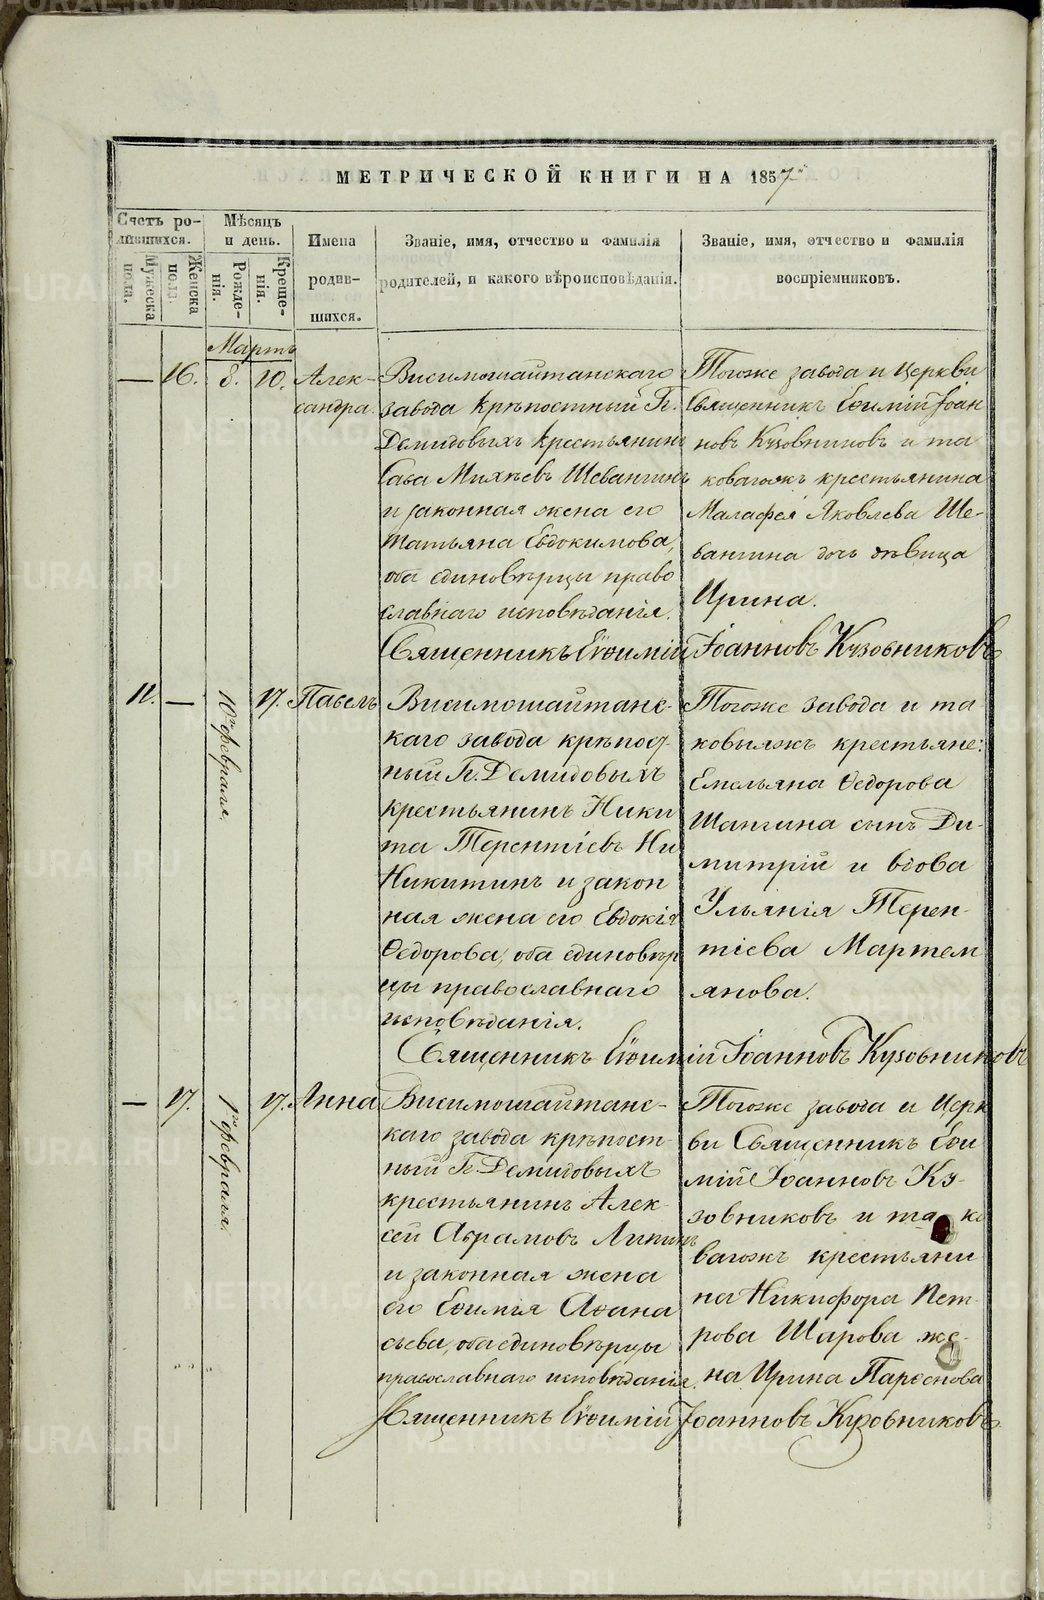 МЕТРИЧЕСКОЙ КНИГИ НА 1857
Счетъ ро-
дившихся.
Мужеска
пола.
Женска
пола.
Мѣсяцъ
и день.
Рожде-
нія.
Креще-
нія.
Имена
родив-
шихся.
Званіе, имя, отчество и фамилія
родителей, и какого вѣроисповѣданія.
Званіе, имя, отчество и фамилія
воспріемниковъ.
Мартъ
— 16. 8. 10. Алек-
сандра.
Висимошайтанскаго
завода крѣпостный Г.
Демидовыхъ крестьянинъ
Сава Михѣевъ Шевангинъ
и законная жена его
Татьяна Евдокимова,
оба единовѣрцы право
славнаго исповѣданія.
Тогоже завода и церкви
Священникъ Евѳимій Іоан
новъ Кузовниковъ и та
ковагожъ крестьянина
Малафея Яковлева Ше-
вангина дочь дѣвица
Ирина.
Священникъ Евѳимій Іоанновъ Кузовниковъ
11. — 10го февраля. 17. Павелъ
Висимошайтанс-
каго завода крѣпост-
ный Г. Демидовыхъ
крестьянинъ Ники
та Терентіевъ Ни
Никитинъ и закон
ная жена его Евдокія
Ѳедорова, оба единовѣр
цы православнаго
исповѣданія.
Тогоже завода и та
ковыяжъ крестьяне:
Емельяна Ѳедорова
Шангина сынъ Ди-
митрій и вдова
Ульянія Терен-
тіева Мартем
янова.
Священникъ Евѳимій Іоанновъ Кузовниковъ
— 17. 1го февраля 17. Анна
Висимошайтанс-
каго завода крѣпост-
ный Г. Демидовыхъ
крестьянинъ Алек-
сѣй Аврамовъ Липинъ
и законная жена
его Евѳимія Аѳана
сьева, оба единовѣрцы
православнаго исповѣданія.
Тогоже завода и Церк
ви Священникъ Евѳи
мій Іоанновъ Ку-
зовниковъ и та ко
вагожъ крестьяни
на Никифора Пет
рова Шарова же-
на Ирина Парѳенова
Священникъ Евѳимій Іоанновъ Кузовниковъ
METRIKI.GASO-URAL.RU